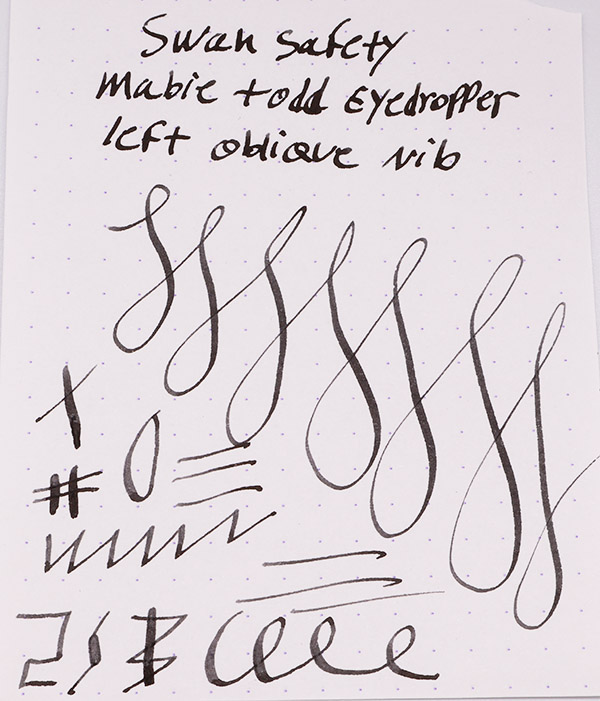 Swan Safety
Mabie todd Eyedropper
left oblique nib